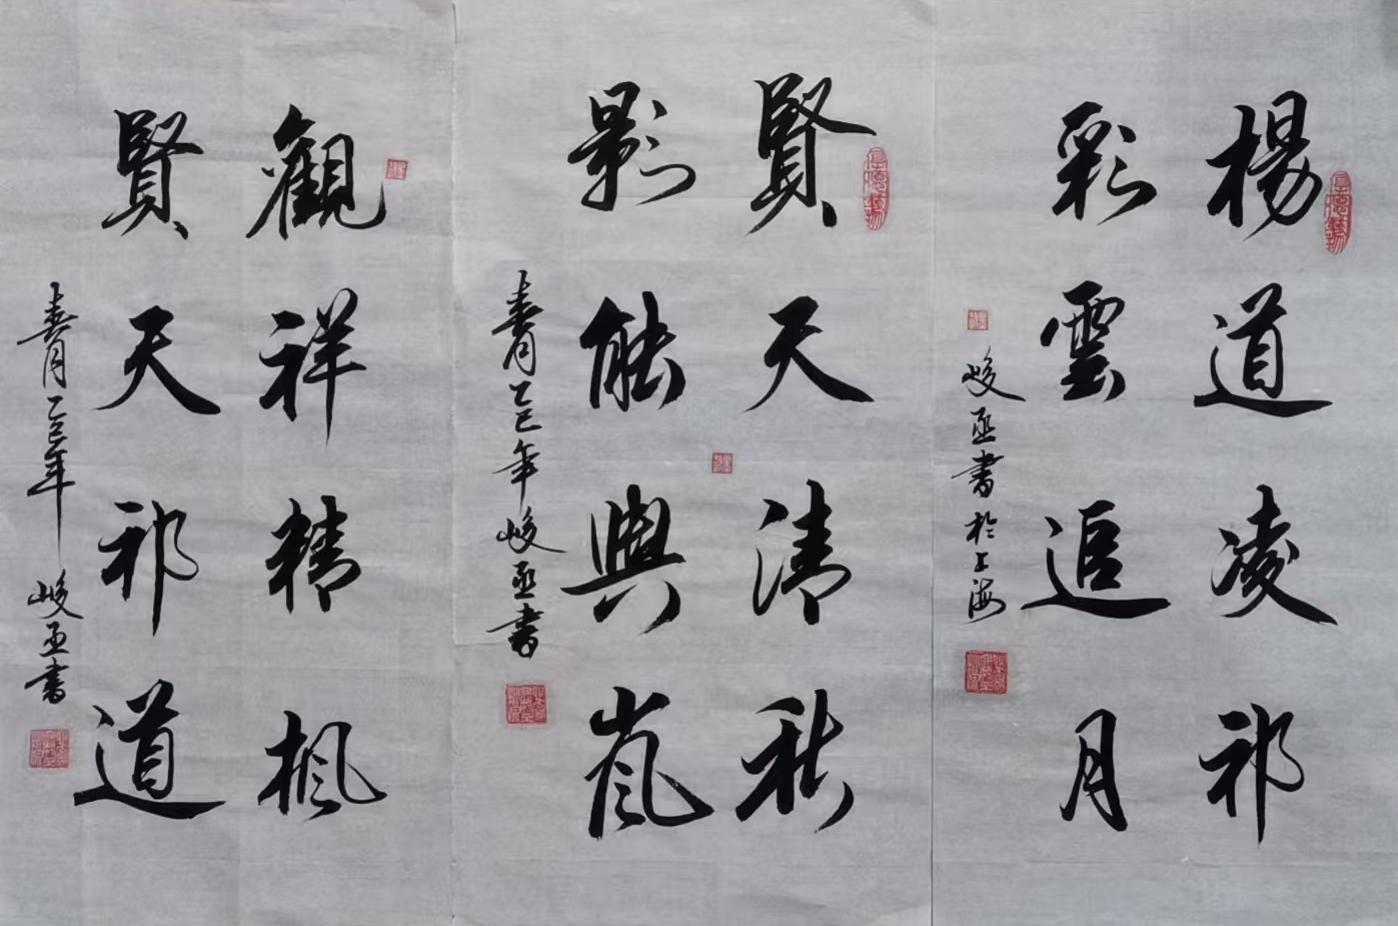 楊道凌祁
彩雲追月
峻丞書於上海
賢天清秋
影能與嵐
青月乙巳年峻丞書
觀祥精楓
賢天祁道
青月乙巳年峻丞書